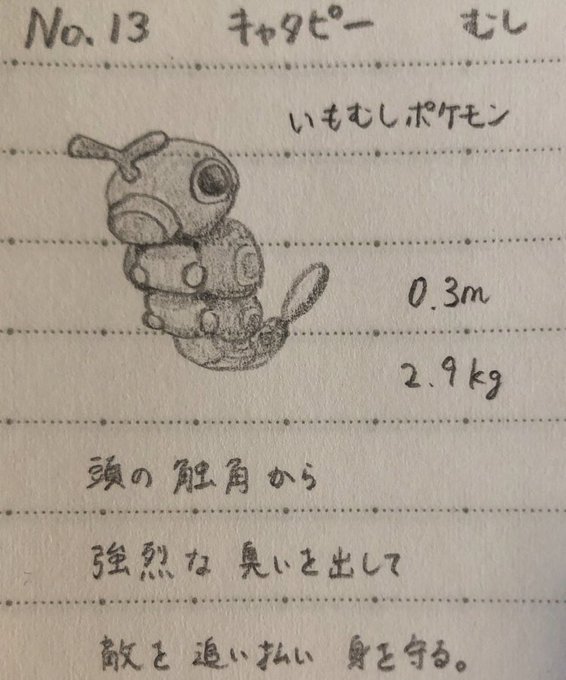 No.13 キャタピー むし
いもむしポケモン
0.3m
2.9kg
頭の触角から
強烈な臭いを出して
敵を追い払い身を守る。